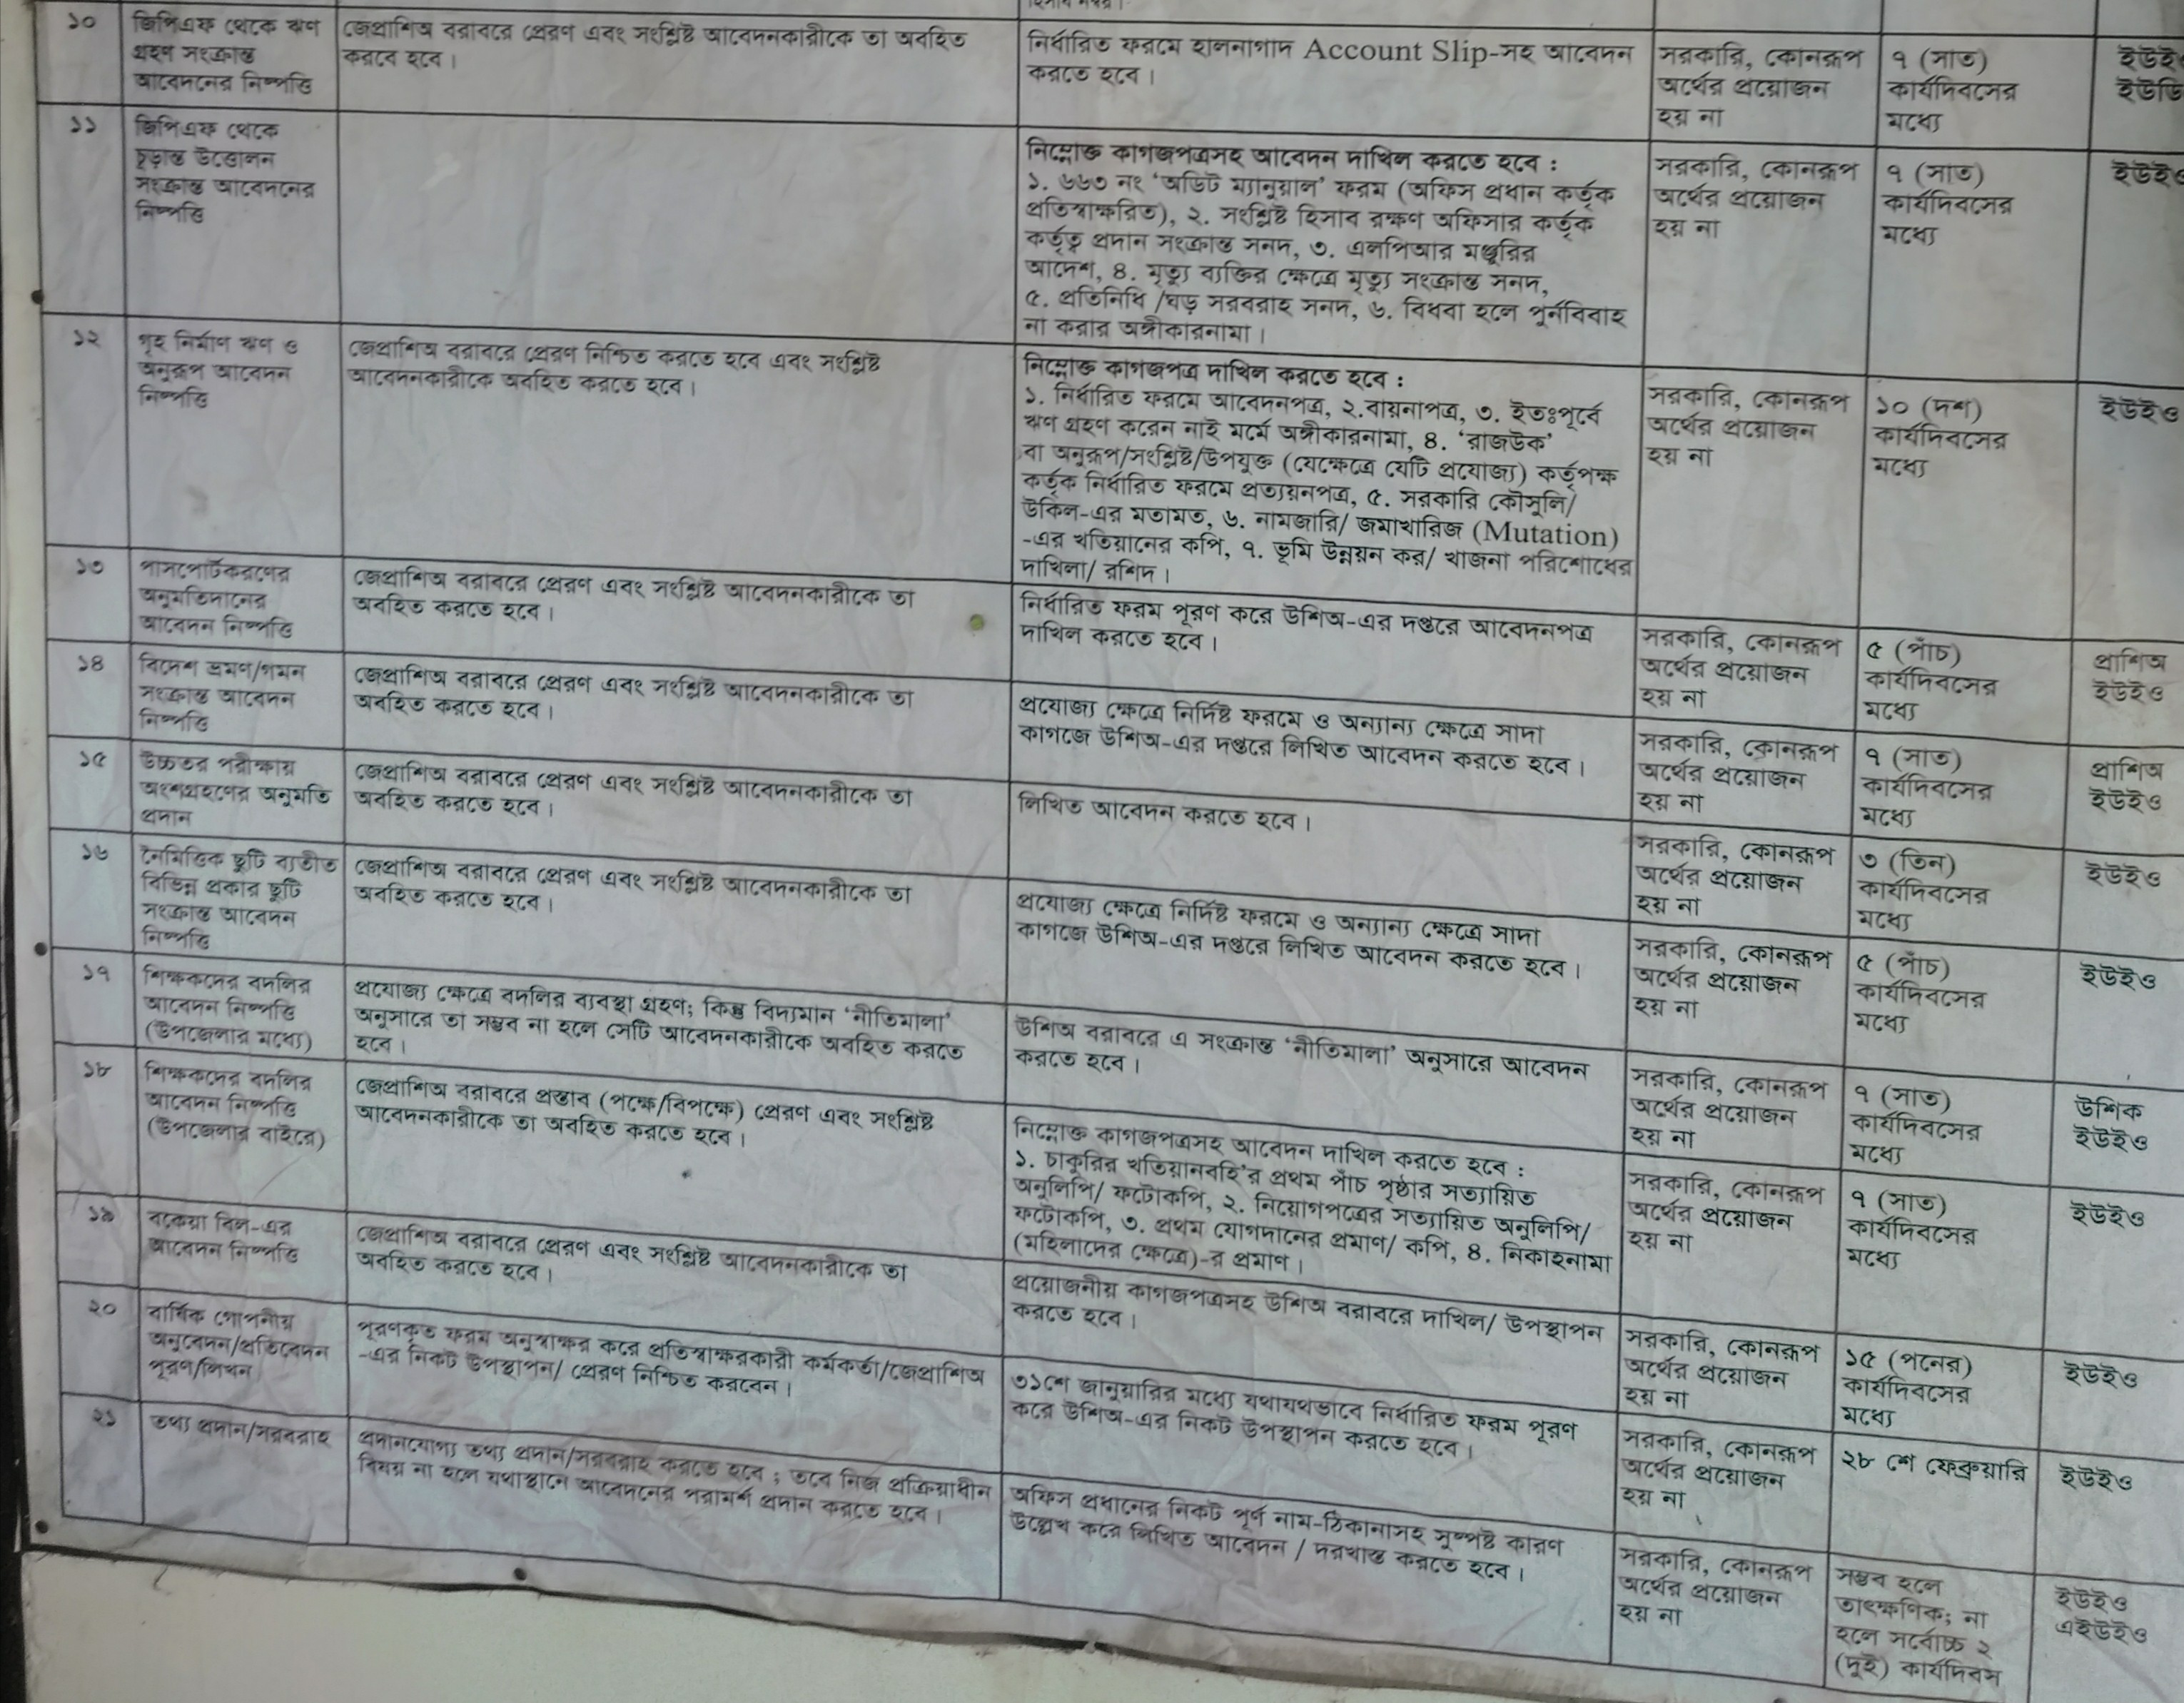 ১০
জিপিএফ থেকে ঋণ
গ্রহণ সংক্রান্ত
আবেদনের নিষ্পত্তি
জেপ্রাশিঅ বরাবরে প্রেরণ এবং সংশ্লিষ্ট আবেদনকারীকে তা অবহিত
করবে হবে।
নির্ধারিত ফরমে হালনাগাদ Account Slip-সহ আবেদন
করতে হবে।
সরকারি, কোনরূপ
অর্থের প্রয়োজন
হয় না
৭ (সাত)
কার্যদিবসের
মধ্যে
১১
জিপিএফ থেকে
চূড়ান্ত উত্তোলন
সংক্রান্ত আবেদনের
নিষ্পত্তি
নিম্নোক্ত কাগজপত্রসহ আবেদন দাখিল করতে হবে :
১. ৬৬৩ নং ‘অডিট ম্যানুয়াল’ ফরম (অফিস প্রধান কর্তৃক
প্রতিস্বাক্ষরিত), ২. সংশ্লিষ্ট হিসাব রক্ষণ অফিসার কর্তৃক
কর্তৃত্ব প্রদান সংক্রান্ত সনদ, ৩. এলপিআর মঞ্জুরির
আদেশ, ৪. মৃত্যু ব্যক্তির ক্ষেত্রে মৃত্যু সংক্রান্ত সনদ,
৫. প্রতিনিধি /ঘড় সরবরাহ সনদ, ৬. বিধবা হলে পুর্নবিবাহ
না করার অঙ্গীকারনামা।
সরকারি, কোনরূপ
অর্থের প্রয়োজন
হয় না
৭ (সাত)
কার্যদিবসের
মধ্যে
১২
গৃহ নির্মাণ ঋণ ও
অনুরূপ আবেদন
নিষ্পত্তি
জেপ্রাশিঅ বরাবরে প্রেরণ নিশ্চিত করতে হবে এবং সংশ্লিষ্ট
আবেদনকারীকে অবহিত করতে হবে।
নিম্নোক্ত কাগজপত্র দাখিল করতে হবে :
১. নির্ধারিত ফরমে আবেদনপত্র, ২.বায়নাপত্র, ৩. ইতঃপূর্বে
ঋণ গ্রহণ করেন নাই মর্মে অঙ্গীকারনামা, ৪. ‘রাজউক’
বা অনুরূপ/সংশ্লিষ্ট/উপযুক্ত (যেক্ষেত্রে যেটি প্রযোজ্য) কর্তৃপক্ষ
কর্তৃক নির্ধারিত ফরমে প্রত্যয়নপত্র, ৫. সরকারি কৌসুলি/
উকিল-এর মতামত, ৬. নামজারি/ জমাখারিজ (Mutation)
-এর খতিয়ানের কপি, ৭. ভূমি উন্নয়ন কর/ খাজনা পরিশোধের
দাখিলা/ রশিদ।
সরকারি, কোনরূপ
অর্থের প্রয়োজন
হয় না
১০ (দশ)
কার্যদিবসের
মধ্যে
ইউইও
১৩
পাসপোর্টকরণের
অনুমতিদানের
আবেদন নিষ্পত্তি
জেপ্রাশিঅ বরাবরে প্রেরণ এবং সংশ্লিষ্ট আবেদনকারীকে তা
অবহিত করতে হবে।
নির্ধারিত ফরম পূরণ করে উশিঅ-এর দপ্তরে আবেদনপত্র
দাখিল করতে হবে।
সরকারি, কোনরূপ
অর্থের প্রয়োজন
হয় না
৫ (পাঁচ)
কার্যদিবসের
মধ্যে
প্রাশিঅ
ইউইও
১৪
বিদেশ ভ্রমণ/গমন
সংক্রান্ত আবেদন
নিষ্পত্তি
জেপ্রাশিঅ বরাবরে প্রেরণ এবং সংশ্লিষ্ট আবেদনকারীকে তা
অবহিত করতে হবে।
প্রযোজ্য ক্ষেত্রে নির্দিষ্ট ফরমে ও অন্যান্য ক্ষেত্রে সাদা
কাগজে উশিঅ-এর দপ্তরে লিখিত আবেদন করতে হবে।
সরকারি, কোনরূপ
অর্থের প্রয়োজন
হয় না
৭ (সাত)
কার্যদিবসের
মধ্যে
প্রাশিঅ
ইউইও
১৫
উচ্চতর পরীক্ষায়
অংশগ্রহণের অনুমতি
প্রদান
জেপ্রাশিঅ বরাবরে প্রেরণ এবং সংশ্লিষ্ট আবেদনকারীকে তা
অবহিত করতে হবে।
লিখিত আবেদন করতে হবে।
সরকারি, কোনরূপ
অর্থের প্রয়োজন
হয় না
৩ (তিন)
কার্যদিবসের
মধ্যে
ইউইও
১৬
নৈমিত্তিক ছুটি ব্যতীত
বিভিন্ন প্রকার ছুটি
সংক্রান্ত আবেদন
নিষ্পত্তি
জেপ্রাশিঅ বরাবরে প্রেরণ এবং সংশ্লিষ্ট আবেদনকারীকে তা
অবহিত করতে হবে।
প্রযোজ্য ক্ষেত্রে নির্দিষ্ট ফরমে ও অন্যান্য ক্ষেত্রে সাদা
কাগজে উশিঅ-এর দপ্তরে লিখিত আবেদন করতে হবে।
সরকারি, কোনরূপ
অর্থের প্রয়োজন
হয় না
৫ (পাঁচ)
কার্যদিবসের
মধ্যে
ইউইও
১৭
শিক্ষকদের বদলির
আবেদন নিষ্পত্তি
(উপজেলার মধ্যে)
প্রযোজ্য ক্ষেত্রে বদলির ব্যবস্থা গ্রহণ; কিন্তু বিদ্যমান ‘নীতিমালা’
অনুসারে তা সম্ভব না হলে সেটি আবেদনকারীকে অবহিত করতে
হবে।
উশিঅ বরাবরে এ সংক্রান্ত ‘নীতিমালা’ অনুসারে আবেদন
করতে হবে।
সরকারি, কোনরূপ
অর্থের প্রয়োজন
হয় না
৭ (সাত)
কার্যদিবসের
মধ্যে
উশিক
ইউইও
১৮
শিক্ষকদের বদলির
আবেদন নিষ্পত্তি
(উপজেলার বাইরে)
জেপ্রাশিঅ বরাবরে প্রস্তাব (পক্ষে/বিপক্ষে) প্রেরণ এবং সংশ্লিষ্ট
আবেদনকারীকে তা অবহিত করতে হবে।
নিম্নোক্ত কাগজপত্রসহ আবেদন দাখিল করতে হবে :
১. চাকুরির খতিয়ানবহি’র প্রথম পাঁচ পৃষ্ঠার সত্যায়িত
অনুলিপি/ ফটোকপি, ২. নিয়োগপত্রের সত্যায়িত অনুলিপি/
ফটোকপি, ৩. প্রথম যোগদানের প্রমাণ/ কপি, ৪. নিকাহনামা
(মহিলাদের ক্ষেত্রে)-র প্রমাণ।
সরকারি, কোনরূপ
অর্থের প্রয়োজন
হয় না
৭ (সাত)
কার্যদিবসের
মধ্যে
ইউইও
১৯
বকেয়া বিল-এর
আবেদন নিষ্পত্তি
জেপ্রাশিঅ বরাবরে প্রেরণ এবং সংশ্লিষ্ট আবেদনকারীকে তা
অবহিত করতে হবে।
প্রয়োজনীয় কাগজপত্রসহ উশিঅ বরাবরে দাখিল/ উপস্থাপন
করতে হবে।
সরকারি, কোনরূপ
অর্থের প্রয়োজন
হয় না
১৫ (পনের)
কার্যদিবসের
মধ্যে
ইউইও
২০
বার্ষিক গোপনীয়
অনুবেদন/প্রতিবেদন
পূরণ/লিখন
পূরণকৃত ফরম অনুস্বাক্ষর করে প্রতিস্বাক্ষরকারী কর্মকর্তা/জেপ্রাশিঅ
-এর নিকট উপস্থাপন/ প্রেরণ নিশ্চিত করবেন।
৩১শে জানুয়ারির মধ্যে যথাযথভাবে নির্ধারিত ফরম পূরণ
করে উশিঅ-এর নিকট উপস্থাপন করতে হবে।
সরকারি, কোনরূপ
অর্থের প্রয়োজন
হয় না
২৮ শে ফেব্রুয়ারি
ইউইও
২১
তথ্য প্রদান/সরবরাহ
প্রদানযোগ্য তথ্য প্রদান/সরবরাহ করতে হবে ; তবে নিজ প্রক্রিয়াধীন
বিষয় না হলে যথাস্থানে আবেদনের পরামর্শ প্রদান করতে হবে।
অফিস প্রধানের নিকট পূর্ণ নাম-ঠিকানাসহ সুস্পষ্ট কারণ
উল্লেখ করে লিখিত আবেদন / দরখাস্ত করতে হবে।
সরকারি, কোনরূপ
অর্থের প্রয়োজন
হয় না
সম্ভব হলে
তাৎক্ষণিক; না
হলে সর্বোচ্চ ২
(দুই) কার্যদিবস
ইউইও
এইউইও